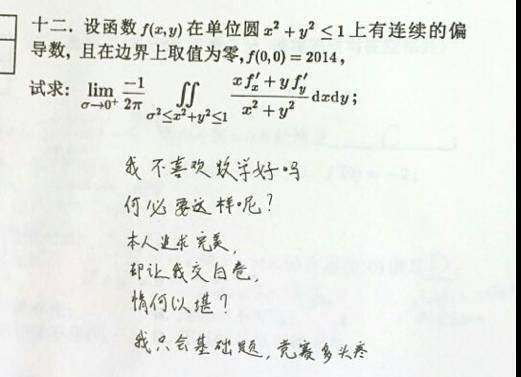 十二. 设函数 f(x,y) 在单位圆 x² + y² ≤ 1 上有连续的偏
导数, 且在边界上取值为零, f(0,0) = 2014,
试求: lim_{σ→0⁺} \frac{-1}{2π} ∬_{σ²≤x²+y²≤1} \frac{x f'_x + y f'_y}{x² + y²} dxdy;
我不喜欢数学好吗
何必要这样呢?
本人追求完美,
却让我交白卷,
情何以堪?
我只会基础题, 竞赛多头疼